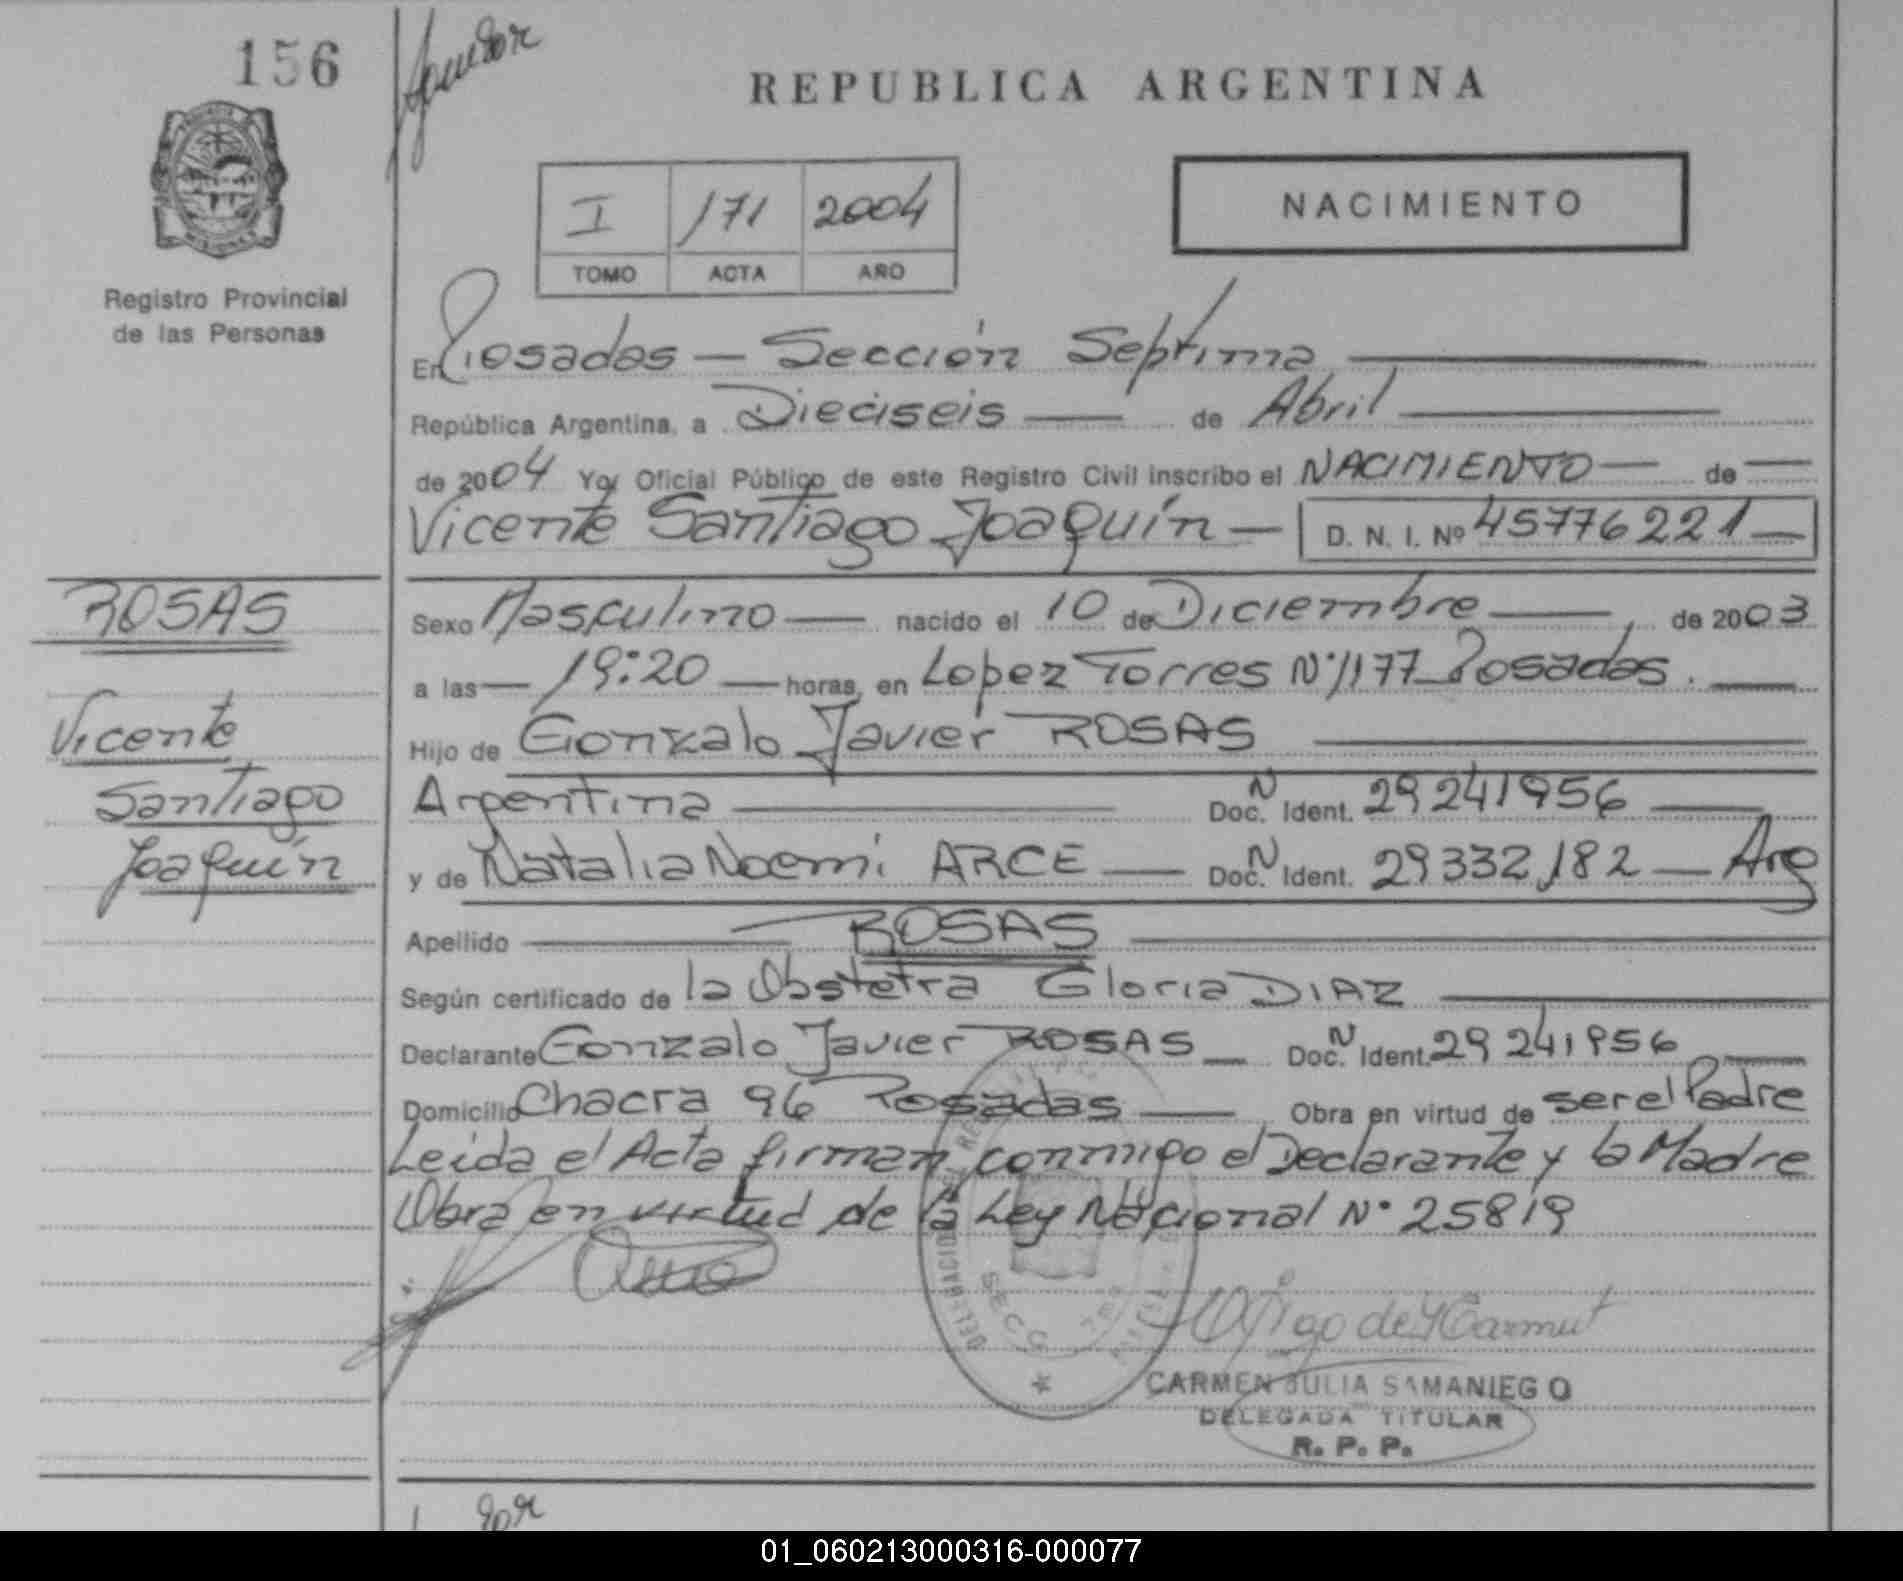 156
REPUBLICA ARGENTINA
I 171 2004
TOMO ACTA AÑO
NACIMIENTO
Registro Provincial
de las Personas
En Posadas — Sección Septima
República Argentina, a Dieciseis — de Abril
de 2004 Yo, Oficial Público de este Registro Civil inscribo el NACIMIENTO — de —
Vicente Santiago Joaquín — D. N. I. Nº 45776221 —
ROSAS
Vicente
Santiago
Joaquín
Sexo Masculino — nacido el 10 de Diciembre — de 2003
a las — 19:20 — horas, en Lopez Torres Nº 1177 Posadas. —
Hijo de Gonzalo Javier ROSAS
Argentina — Doc. N Ident. 29241956 —
y de Natalia Noemi ARCE — Doc. N Ident. 29332182 — Arg
Apellido — ROSAS —
Según certificado de la Obstetra Gloria DIAZ —
Declarante Gonzalo Javier ROSAS — Doc. N Ident. 29241956 —
Domicilio Chacra 96 Posadas — Obra en virtud de ser el Padre
Leida el Acta firman conmigo el Declarante y la Madre
Obra en virtud de la Ley Nacional Nº 25819
SECC
CARMEN JULIA SAMANIEGO
DELEGADA TITULAR
R. P. P.
01_060213000316-000077